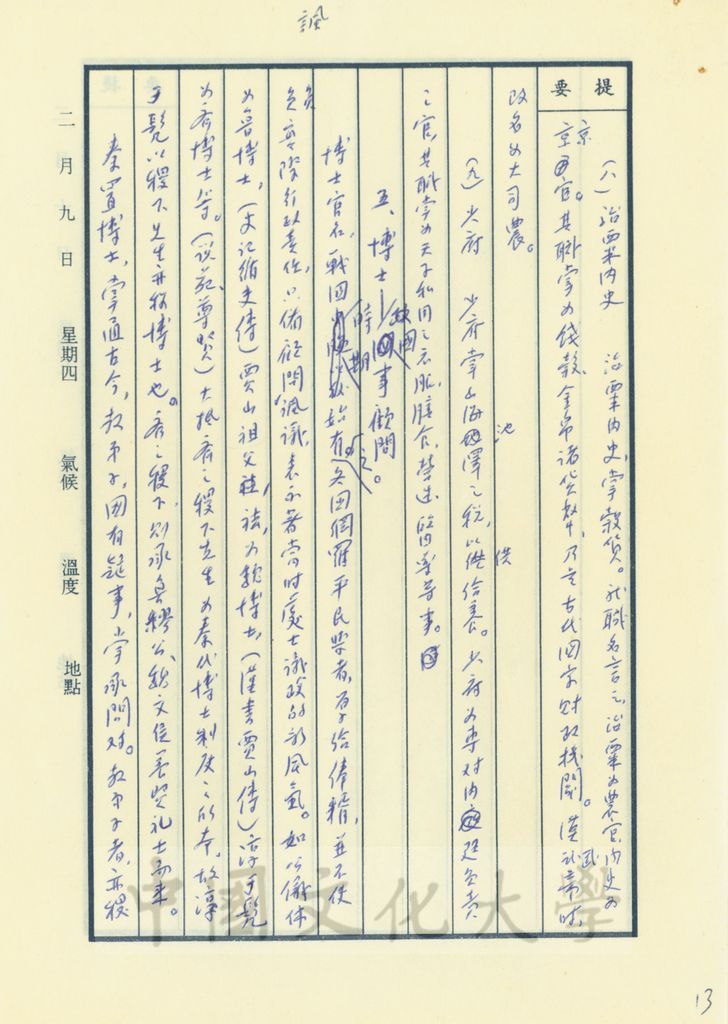 諷
提要
(八)治粟內史 治粟內史,掌穀貨。就職名言之,治粟為農官,內史為
京官。其職掌為錢穀、金帛諸貨幣,乃是古代國家財政機關。漢武帝時,
改名為大司農。
(九)少府 少府掌山海池澤之稅,以供給養。少府為專對內廷負責
之官,其職掌為天子私用之衣服、膳食、營造、醫藥等事。
五、博士—政國事顧問
博士官名,戰國時期始有之。各國網羅平民學者,厚給俸糈,並不使
負實際行政責任,只備顧問諷議,表示著當時處士議政的新風氣。如公儀休
為魯博士,(史記循吏傳)賈山祖父袪,為魏博士,(漢書賈山傳)淳于髡
為齊博士等。(說苑尊賢)大抵齊之稷下先生為秦代博士制度之所本,故淳
于髡以稷下先生亦稱博士也。齊之稷下,則承魯繆公、魏文侯養賢禮士而來。
秦置博士,掌通古今,教弟子,國有疑事,掌承問對。教弟子者,亦稷
二月九日 星期四 氣候 溫度 地點
中國文化大學
13